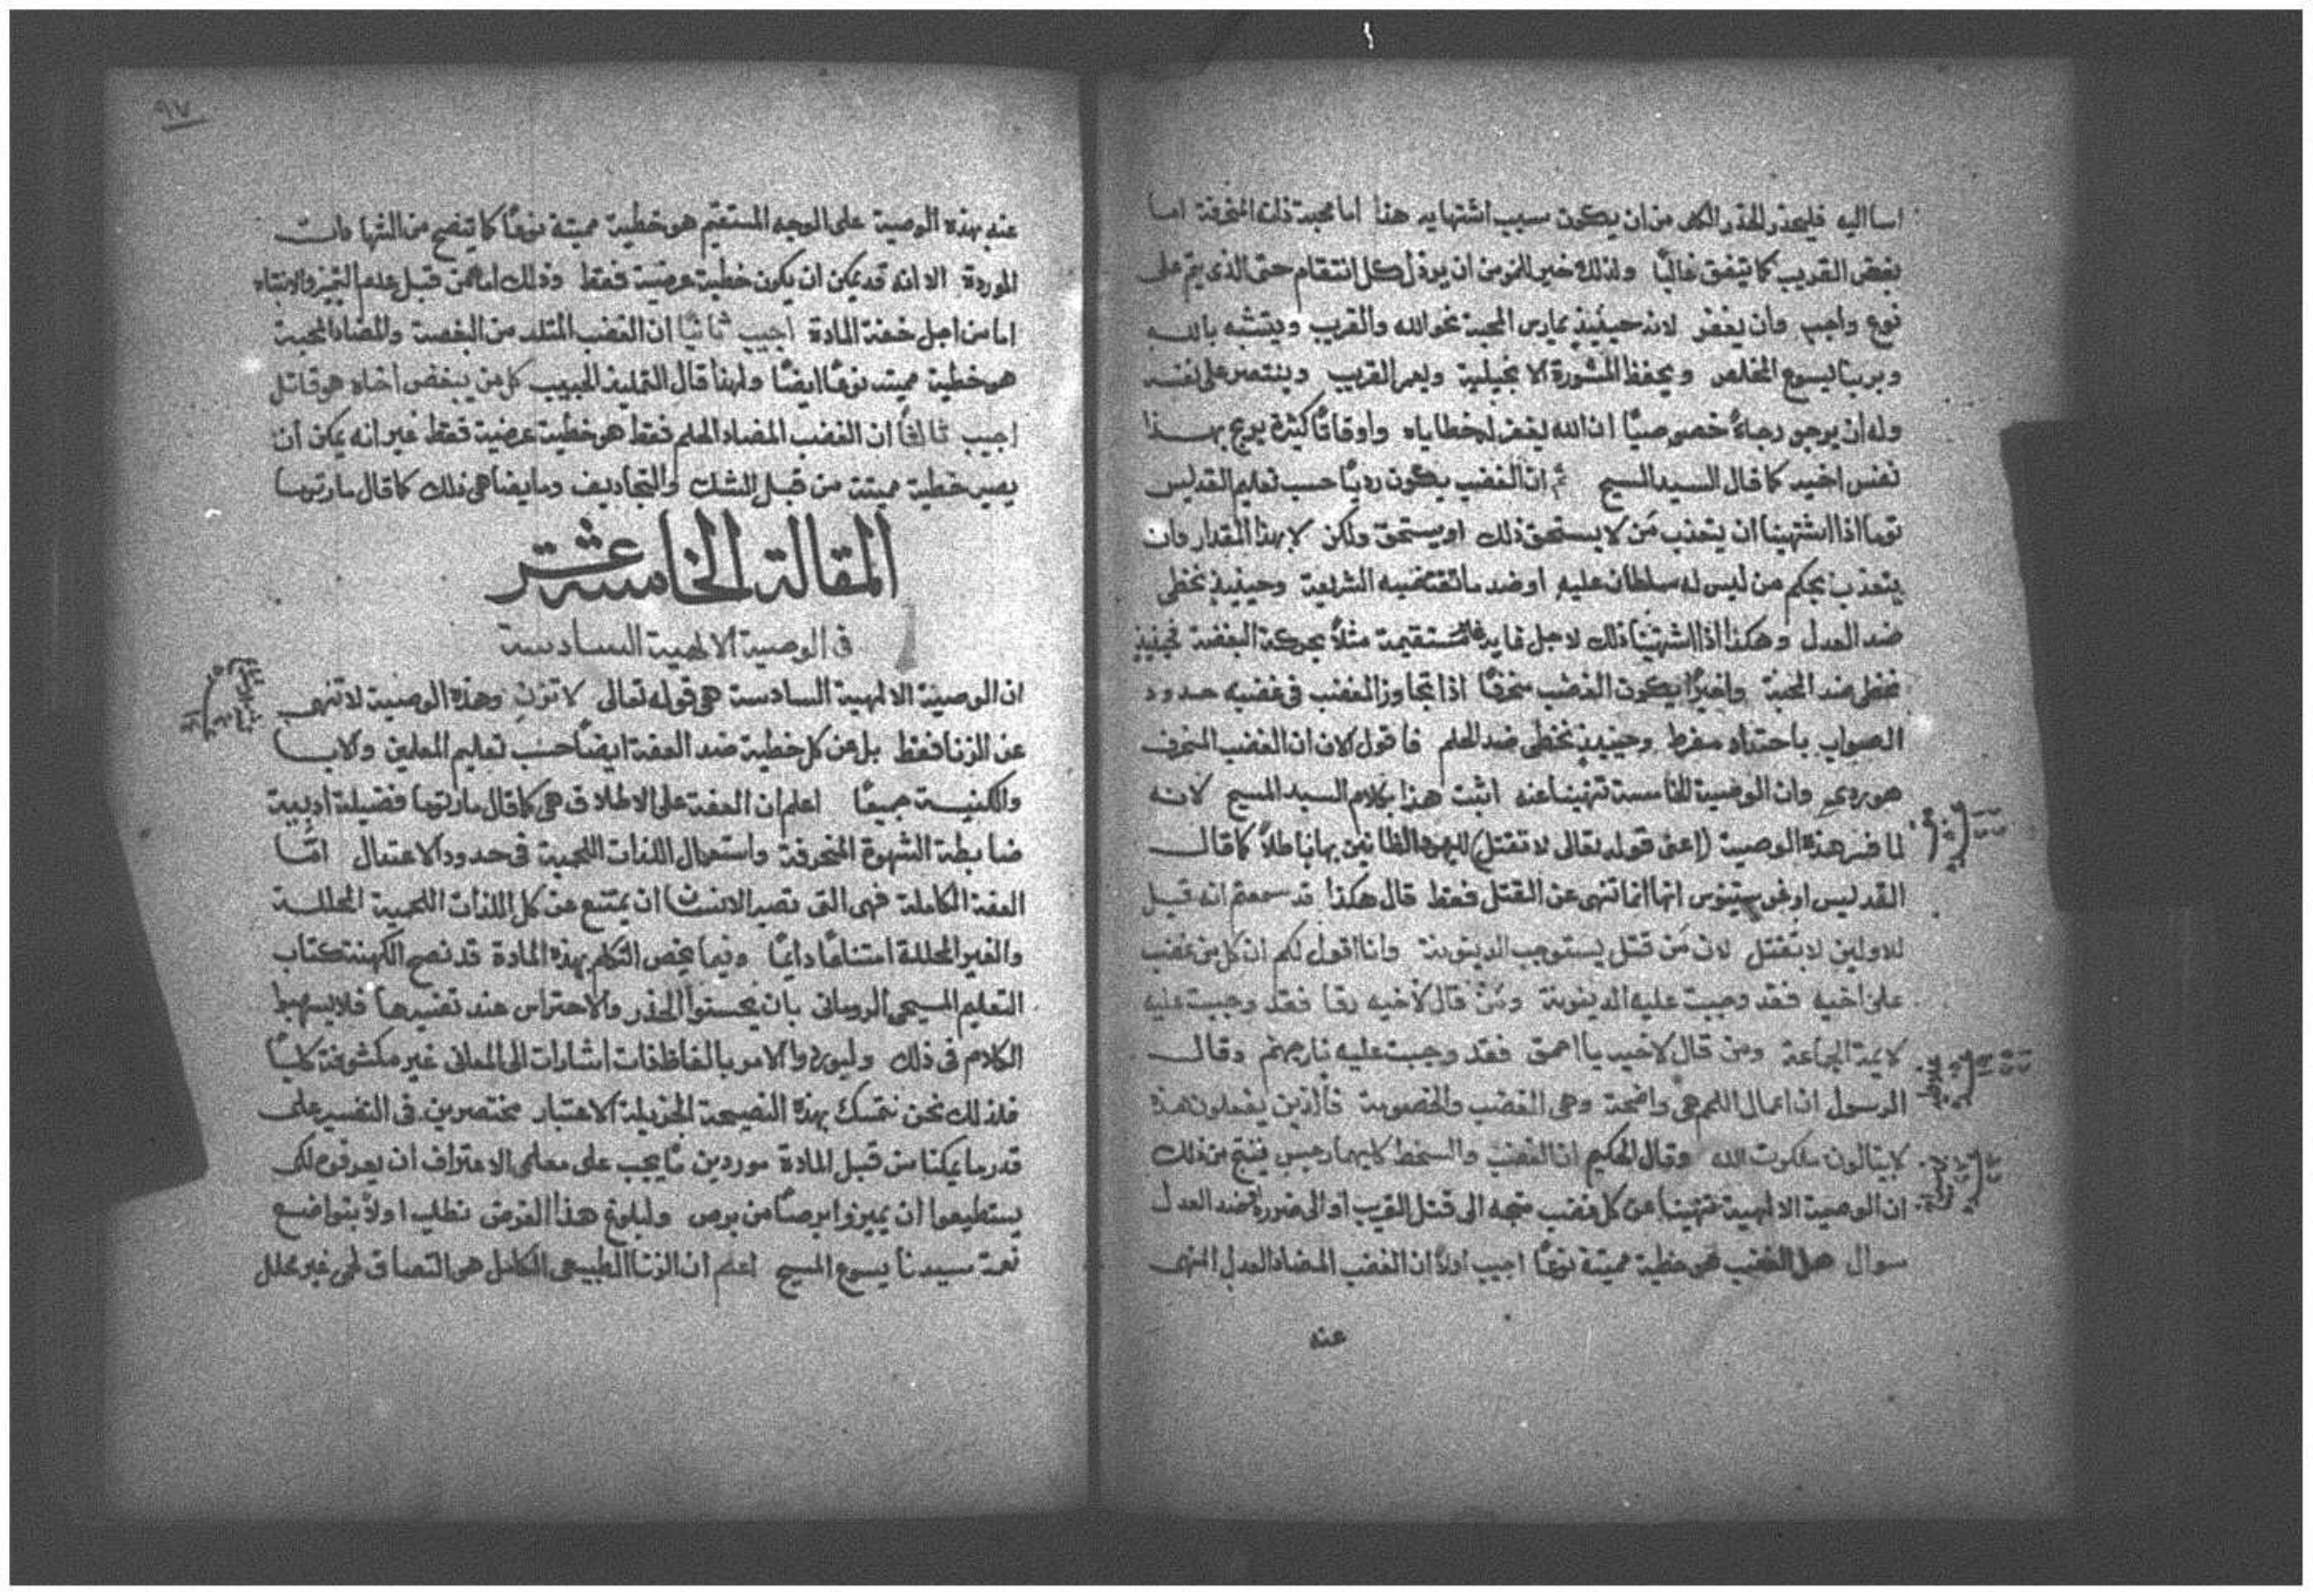 اسا اليه فليحذر الحذر الكلى من ان يكون سبب اشتهايه هذا اما محبة ذاته المنحرفة اما
بغض القريب كما يتفق غالبًا ولذلك خير للمومن ان يرذل كل انتقام حتى الذى يتم على
نوع واجب وان يغفر لانه حينيذٍ يمارس المحبة نحو الله والقريب ويتشبه بالله
وبربنا يسوع المخلص ويحفظ المشورة الانجيلية ويعمر القريب وينتصر على نفسه
وله ان يرجو رجاءً خصوصيًا ان الله يغفر له خطاياه واوقاتًا كثيرة يربح بهذا
نفس اخيه كما قال السيد المسيح ثم ان الغضب يكون رديًا حسب تعليم القديس
توما اذا اشتهينا ان يتعذب من لا يستحق ذلك او يستحق ولكن لا بهذا المقدار وان
يتعذب بحكم من ليس له سلطان عليه او ضد ما تقتضيه الشريعة وحينيذٍ نخطى
ضد العدل وهكذا اذا اشتهينا ذلك لاجل غاية غير مستقيمة مثلًا بحركة البغضة فحينيذٍ
نخطى ضد المحبة واخيرًا يكون الغضب منحرفًا اذا تجاوز المغضب فى غضبه حدود
الصواب باحتداد مفرط وحينيذٍ نخطى ضد الحلم فاقول الان ان الغضب المنحرف
هو ردى وان الوصية الخامسة تنهينا عنه اثبت هذا بكلام السيد المسيح لانه
لما فسر هذه الوصية (اعنى قوله تعالى لا تقتل) لليهود الظانين بها باطلًا كما قال
القديس اوغوستينوس انها انما تنهى عن القتل فقط قال هكذا قد سمعتم انه قيل
للاولين لا تقتل لان من قتل يستوجب الدينونة وانا اقول لكم ان كل من غضب
على اخيه فقد وجبت عليه الدينونة ومن قال لاخيه رقا فقد وجبت عليه
لايمة الجماعة ومن قال لاخيه يا احمق فقد وجبت عليه نار جهنم وقال
الرسول ان اعمال اللحم هى واضحة وهى الغضب والخصومة فالذين يفعلون هذه
لا ينالون ملكوت الله وقال الحكيم ان الغضب والسخط كليهما رجس فينتج من ذلك
ان الوصية الالهية تنهينا عن كل غضب متجه الى قتل القريب او الى ضرره ضد العدل
سوال هل الغضب هى خطية مميتة نوعًا اجيب اولًا ان الغضب المضاد العدل المنهى
عنه
٩٧
عنه بهذه الوصية على الوجه المستقيم هو خطية مميتة نوعًا كما يتضح من الشهادات
الموردة الا انه قد يمكن ان يكون خطية عرضية فقط وذلك اما من قبل عدم التميز والانتباه
اما من اجل خفة المادة اجيب ثانيًا ان الغضب المتلد من البغضة والمضاد المحبة
هو خطية مميتة نوعًا ايضًا ولهذا قال التلميذ الحبيب كل من يبغض اخاه هو قاتل
اجيب ثالثًا ان الغضب المضاد الحلم فقط هو خطية عرضية فقط غير انه يمكن ان
يصير خطية مميتة من قبل الشك والتجاديف وما يضاهى ذلك كما قال مار توما
المقالة الخامسة عشر
فى الوصية الالهية السادسة
ان الوصية الالهية السادسة هى قوله تعالى لا تزنِ وهذه الوصية لا تنهى
عن الزنا فقط بل عن كل خطية ضد العفة ايضًا حسب تعليم المعلمين والابا
والكنيسة جميعًا اعلم ان العفة على الاطلاق هى كما قال مار توما فضيلة ادبية
ضابطة الشهوة المنحرفة واستعمال اللذات اللحمية فى حدود الاعتدال امّا
العفة الكاملة فهى التى تصير الانسان ان يمتنع عن كل اللذات اللحمية المحللة
والغير المحللة امتناعًا دايمًا وفيما يخص التكلم بهذه المادة قد نصح الكهنة كتاب
التعليم المسيحى الرومانى بان يحسنوا الحذر والاحتراس عند تفسيرها فلا يسهبط
الكلام فى ذلك وليوردوا الامر بالفاظ ذات اشارات الى المعانى غير مكشوفة كليًا
فلذلك نحن نتمسك بهذه النصيحة الجزيلة الاعتبار مختصرين فى التفسير على
قدر ما يمكنا من قبل المادة موردين ما يجب على معلمى الاعتراف ان يعرفوه لكى
يستطيعوا ان يميزوا برصًا من برص ولبلوغ هذا الغرض نطلب اولًا بتواضع
نعمة سيدنا يسوع المسيح اعلم ان الزنا الطبيعى الكامل هو التصاق لحمى غير محلل